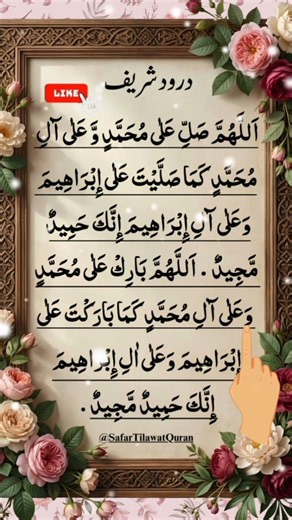 درود شریف
LIKE
اَللّٰهُمَّ صَلِّ عَلٰی مُحَمَّدٍ وَّ عَلٰی آلِ
مُحَمَّدٍ کَمَا صَلَّیْتَ عَلٰی اِبْرَاهِیمَ
وَعَلٰی آلِ اِبْرَاهِیمَ اِنَّكَ حَمِیدٌ
مَّجِیدٌ . اَللّٰهُمَّ بَارِكْ عَلٰی مُحَمَّدٍ
وَعَلٰی آلِ مُحَمَّدٍ کَمَا بَارَكْتَ عَلٰی
اِبْرَاهِیمَ وَعَلٰی اٰلِ اِبْرَاهِیمَ
اِنَّكَ حَمِیدٌ مَّجِیدٌ .
@SafarTilawatQuran